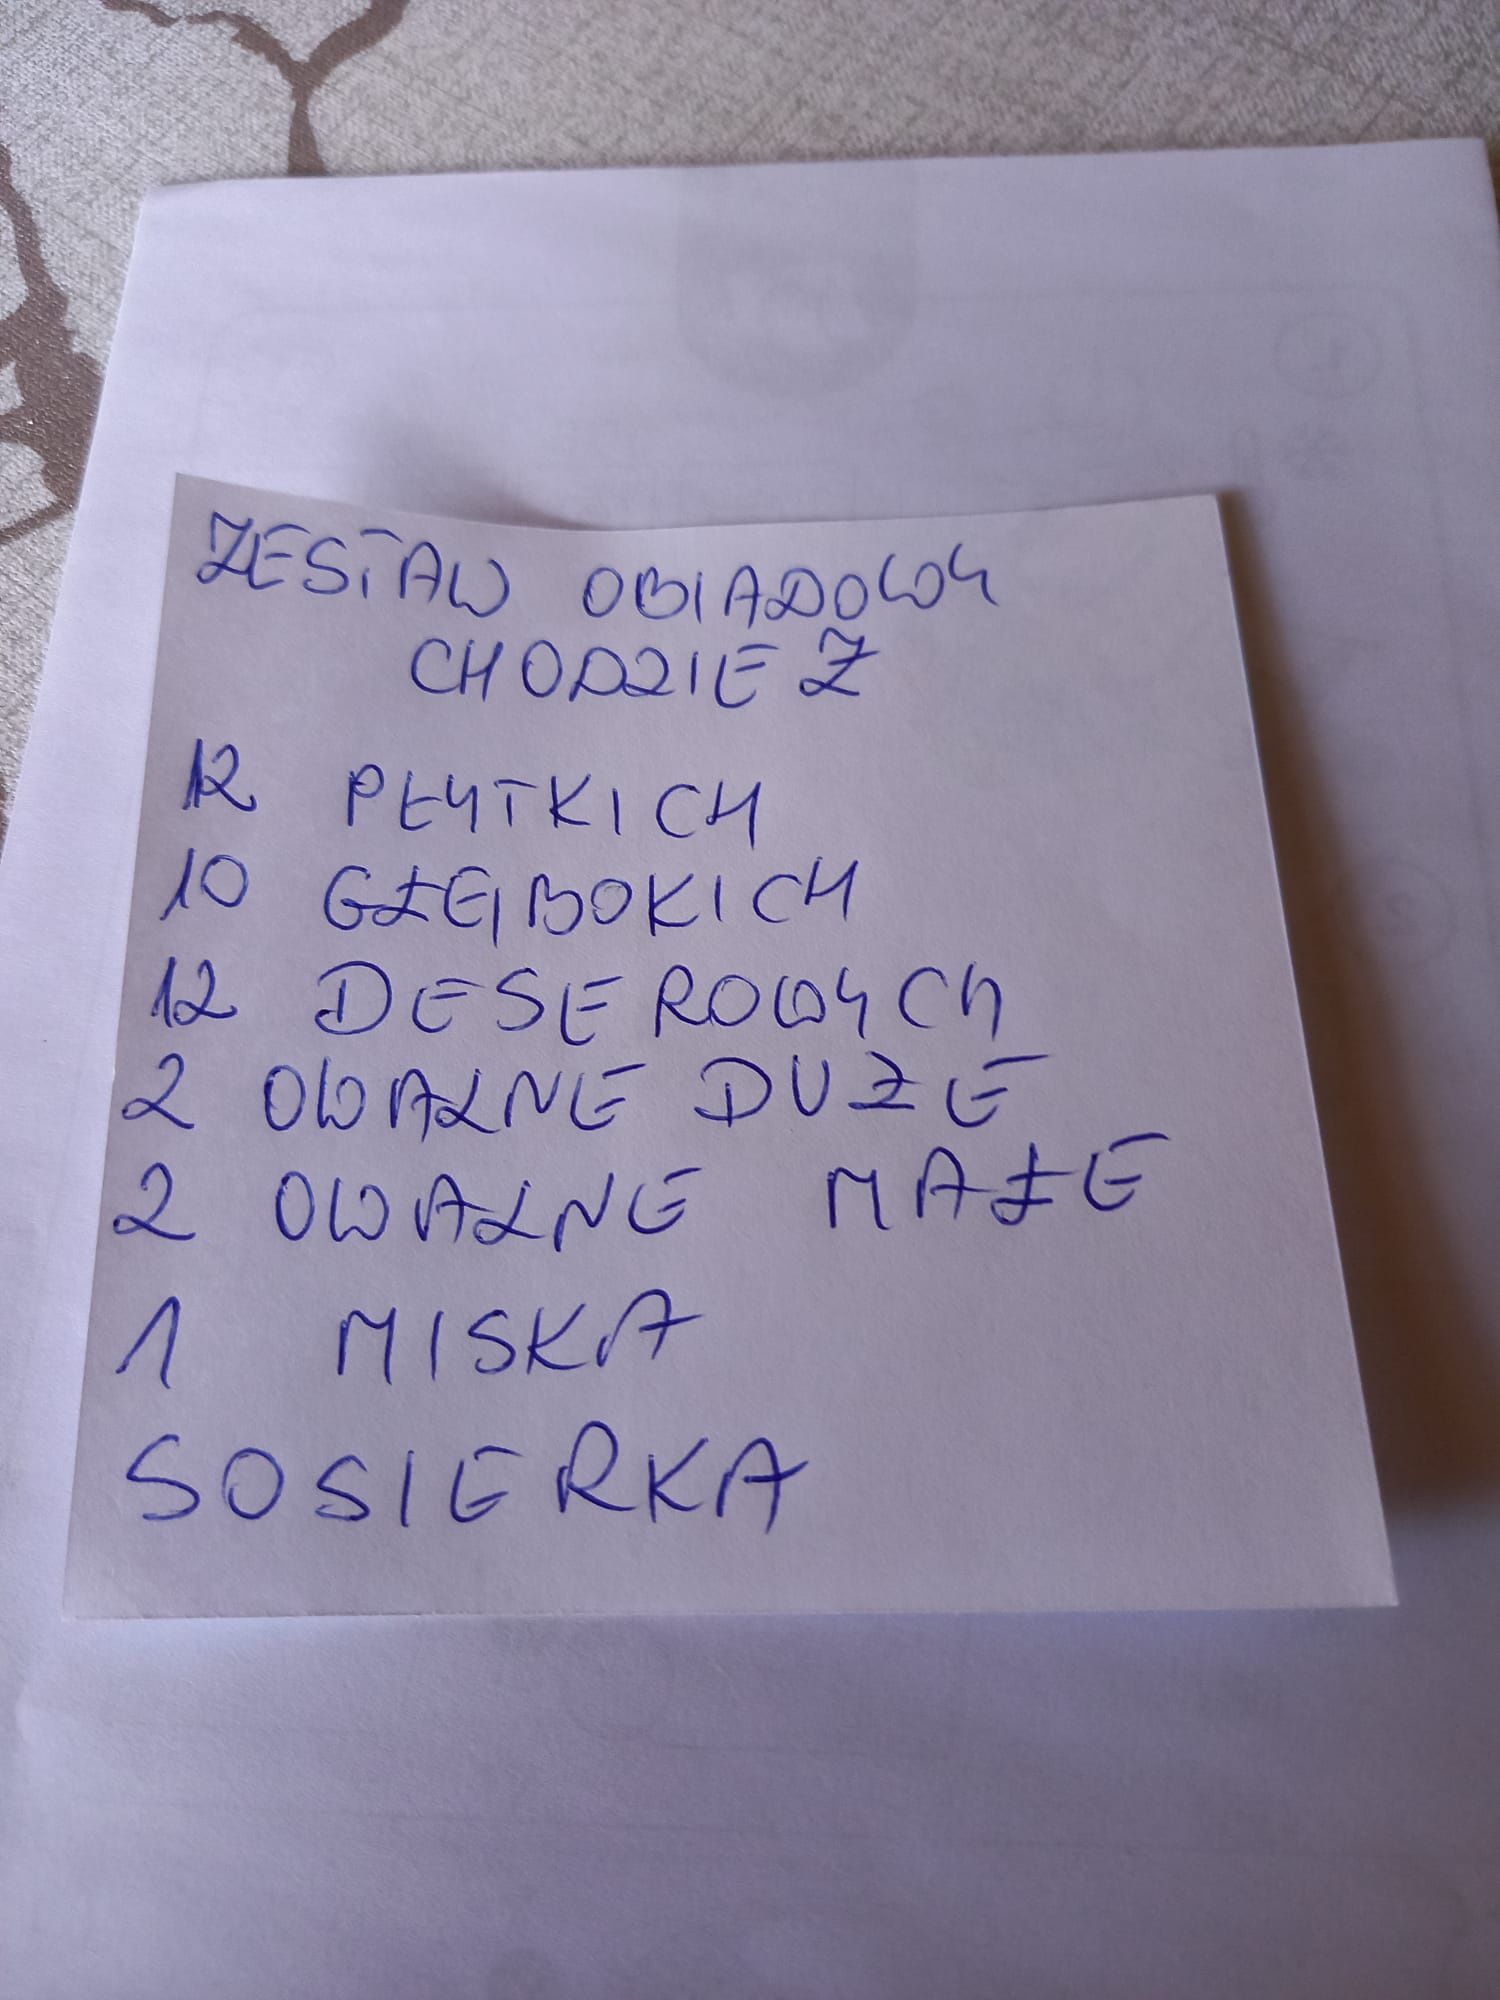 ZESTAW OBIADOWY
CHODZIEŻ
12 PŁYTKICH
10 GŁĘBOKICH
12 DESEROWYCH
2 OWALNE DUŻE
2 OWALNE MAŁE
1 MISKA
SOSIERKA